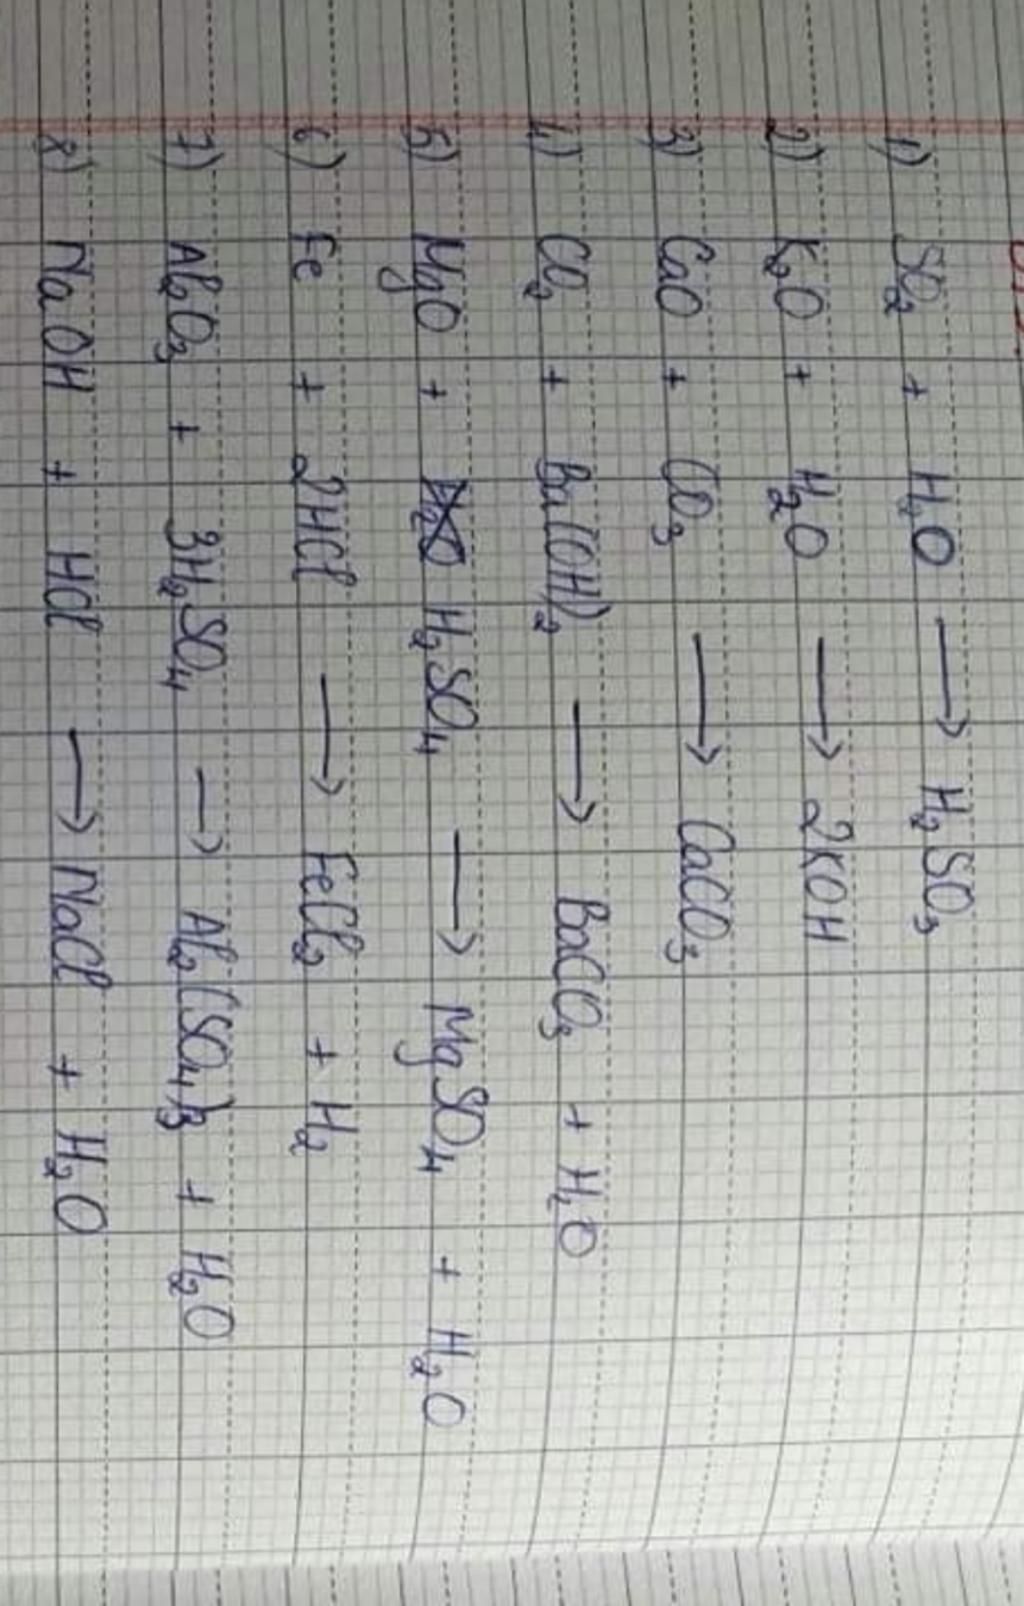 1) SO₂ + H₂O ⟶ H₂SO₃
2) K₂O + H₂O ⟶ 2KOH
3) CaO + CO₃ ⟶ CaCO₃
4) CO₂ + Ba(OH)₂ ⟶ BaCO₃ + H₂O
5) MgO + H₂SO₄ ⟶ MgSO₄ + H₂O
6) Fe + 2HCl ⟶ FeCl₂ + H₂
7) Al₂O₃ + 3H₂SO₄ ⟶ Al₂(SO₄)₃ + H₂O
8) NaOH + HCl ⟶ NaCl + H₂O